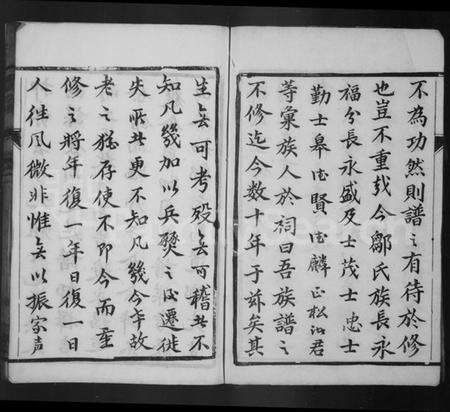 不為功然則譜之有待於修
也豈不重哉今鄒氏族長永
福分長永盛及士茂士忠士
勤士皋宏賢宏麟正松泗君
等彙族人於祠曰吾族譜之
不修迄今数十年于茲矣其
生無可考殁無可稽者不
知凡幾加以兵燹之後遷徙
失所者更不知凡幾今年故
老之猶存使不即今而重
修之將年復一年日復一日
人往風微非惟無以振家声